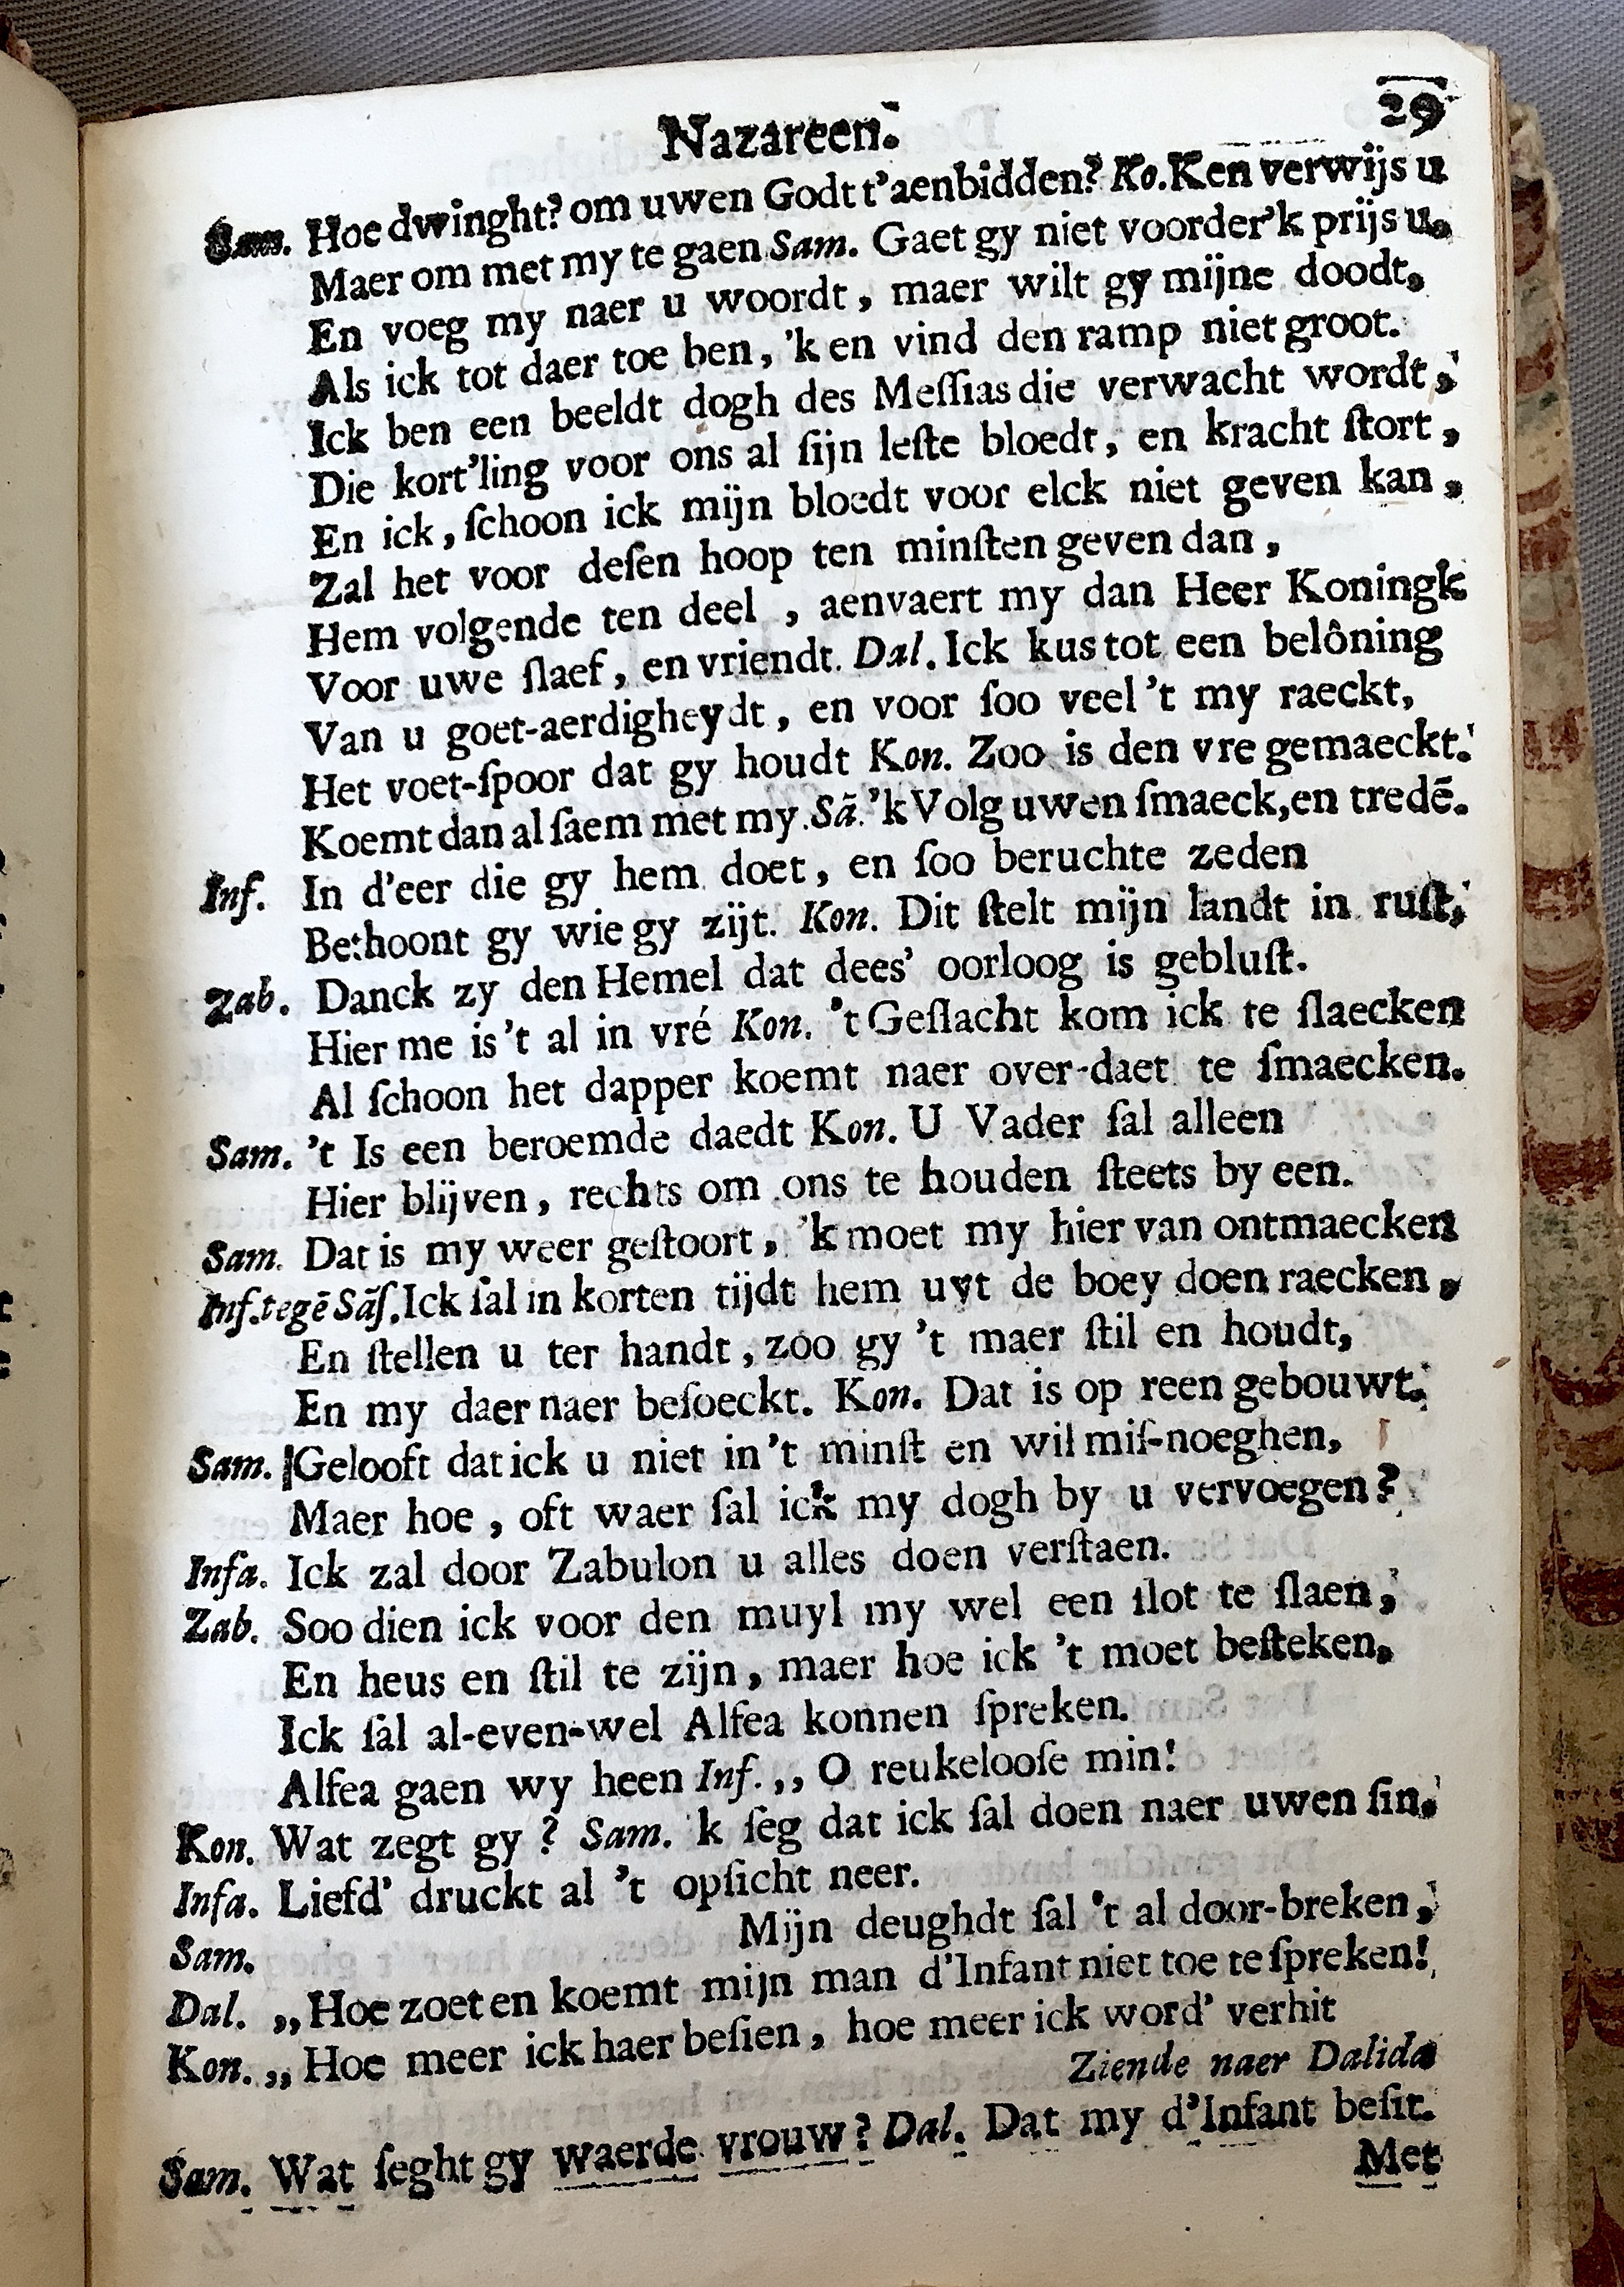 Nazareen.
29
Sam. Hoe dwinght? om uwen Godt t'aenbidden? Ko. Ken verwijs u
Maer om met my te gaen Sam. Gaet gy niet voorder'k prijs u,
En voeg my naer u woordt, maer wilt gy mijne doodt,
Als ick tot daer toe ben, 'k en vind den ramp niet groot.
Ick ben een beeldt dogh des Meſſias die verwacht wordt,
Die kort'ling voor ons al ſijn leſte bloedt, en kracht ſtort,
En ick, ſchoon ick mijn bloedt voor elck niet geven kan,
Zal het voor deſen hoop ten minſten geven dan,
Hem volgende ten deel, aenvaert my dan Heer Koningk
Voor uwe ſlaef, en vriendt. Dal. Ick kus tot een belôning
Van u goet-aerdigheydt, en voor ſoo veel 't my raeckt,
Het voet-ſpoor dat gy houdt Kon. Zoo is den vre gemaeckt.
Koemt dan al ſaem met my. Sā. 'k Volg uwen ſmaeck, en tredē.
Inf. In d'eer die gy hem doet, en ſoo beruchte zeden
Bethoont gy wie gy zijt. Kon. Dit ſtelt mijn landt in ruſt,
Zab. Danck zy den Hemel dat dees' oorloog is gebluſt.
Hier me is 't al in vré Kon. 't Geſlacht kom ick te ſlaecken
Al ſchoon het dapper koemt naer over-daet te ſmaecken.
Sam. 't Is een beroemde daedt Kon. U Vader ſal alleen
Hier blijven, rechts om ons te houden ſteets by een.
Sam. Dat is my weer geſtoort, 'k moet my hier van ontmaecken
Inf. tegē Sāſ. Ick ſal in korten tijdt hem uyt de boey doen raecken,
En ſtellen u ter handt, zoo gy 't maer ſtil en houdt,
En my daer naer beſoeckt. Kon. Dat is op reen gebouwt.
Sam. Gelooft dat ick u niet in 't minſt en wil miſ-noeghen,
Maer hoe, oft waer ſal ick my dogh by u vervoegen?
Infa. Ick zal door Zabulon u alles doen verſtaen.
Zab. Soo dien ick voor den muyl my wel een ſlot te ſlaen,
En heus en ſtil te zijn, maer hoe ick 't moet beſteken,
Ick ſal al-even-wel Alfea konnen ſpreken.
Alfea gaen wy heen Inf. ,, O reukelooſe min!
Kon. Wat zegt gy? Sam. 'k ſeg dat ick ſal doen naer uwen ſin.
Infa. Liefd' druckt al 't opſicht neer.
Sam. Mijn deughdt ſal 't al door-breken,
Dal. ,, Hoe zoet en koemt mijn man d'Infant niet toe te ſpreken!
Kon. ,, Hoe meer ick haer beſien, hoe meer ick word' verhit
Ziende naer Dalida
Sam. Wat ſeght gy waerde vrouw? Dal. Dat my d'Infant beſit.
Met